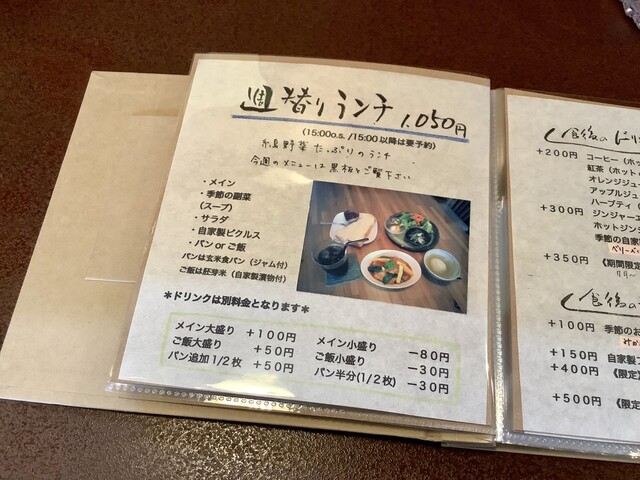 週替りランチ 1,050円
(15:00o.s. /15:00以降は要予約)
糸島野菜たっぷりのランチ
今週のメニューは黒板をご覧下さい
・メイン
・季節の副菜
(スープ)
・サラダ
・自家製ピクルス
・パン or ご飯
パンは玄米食パン(ジャム付)
ご飯は胚芽米(自家製漬物付)
＊ドリンクは別料金となります＊
メイン大盛り +100円
ご飯大盛り +50円
パン追加1/2枚 +50円
メイン小盛り －80円
ご飯小盛り －30円
パン半分(1/2枚) －30円
食後のドリ
+200円 コーヒー(ホッ
紅茶(ホット
オレンジジ
アップルジュ
ハーブティ(
+300円 ジンジャー
ホットジン
季節の自家
+350円 《期間限定
食後の
+100円 季節のお
+150円 自家製
+400円 《限定》
+500円 《限定